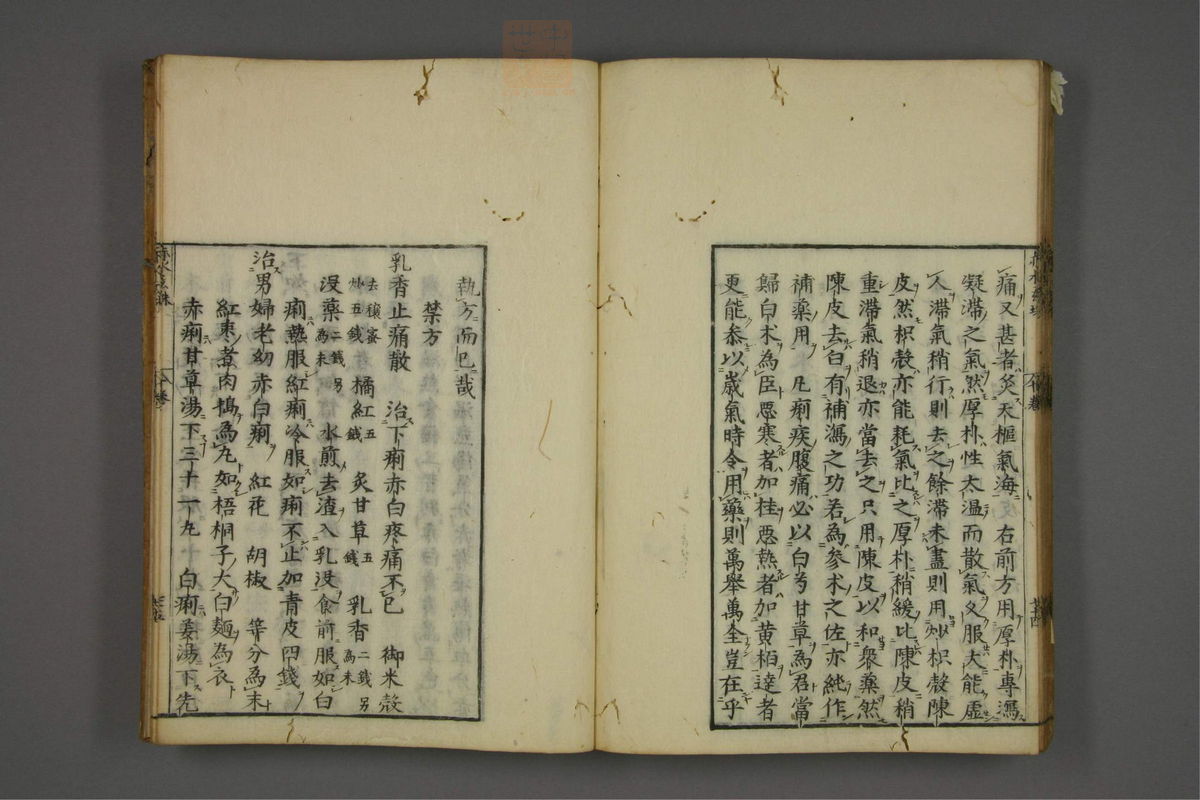 痛又甚者灸天樞氣海 右前方用厚朴專瀉
凝滯之氣然厚朴性太温而散氣久服大能虛
人滯氣稍行則去之餘滯未盡則用炒枳殼陳
皮然枳殼亦能耗氣比之厚朴稍緩比陳皮稍
重滯氣稍退亦當去之只用陳皮以和衆藥然
陳皮去白有補瀉之功若為參术之佐亦純作
補藥用 凡痢疾腹痛必以白芍甘草為君當
歸白术為臣惡寒者加桂惡熱者加黄栢達者
更能叅以歲氣時令用藥則萬舉萬全豈在乎
執方而已哉
禁方
乳香止痛散 治下痢赤白疼痛不已 御米殼
去穰蜜炒五錢 橘紅五錢 炙甘草五錢 乳香二錢另為末
没藥二錢另為末 水煎去渣入乳没食前服如白
痢熱服紅痢冷服如痢不止加青皮四錢
治男婦老幼赤白痢 紅花 胡椒 等分為末
紅棗煮肉搗為丸如梧桐子大白麺為衣
赤痢甘草湯下三十一丸 白痢姜湯下先